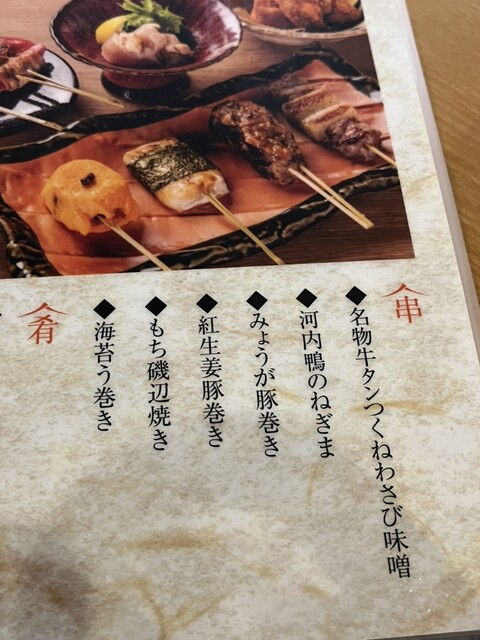 串
◆名物牛タンつくねわさび味噌
◆河内鴨のねぎま
◆みょうが豚巻き
◆紅生姜豚巻き
◆もち磯辺焼き
◆海苔う巻き
肴